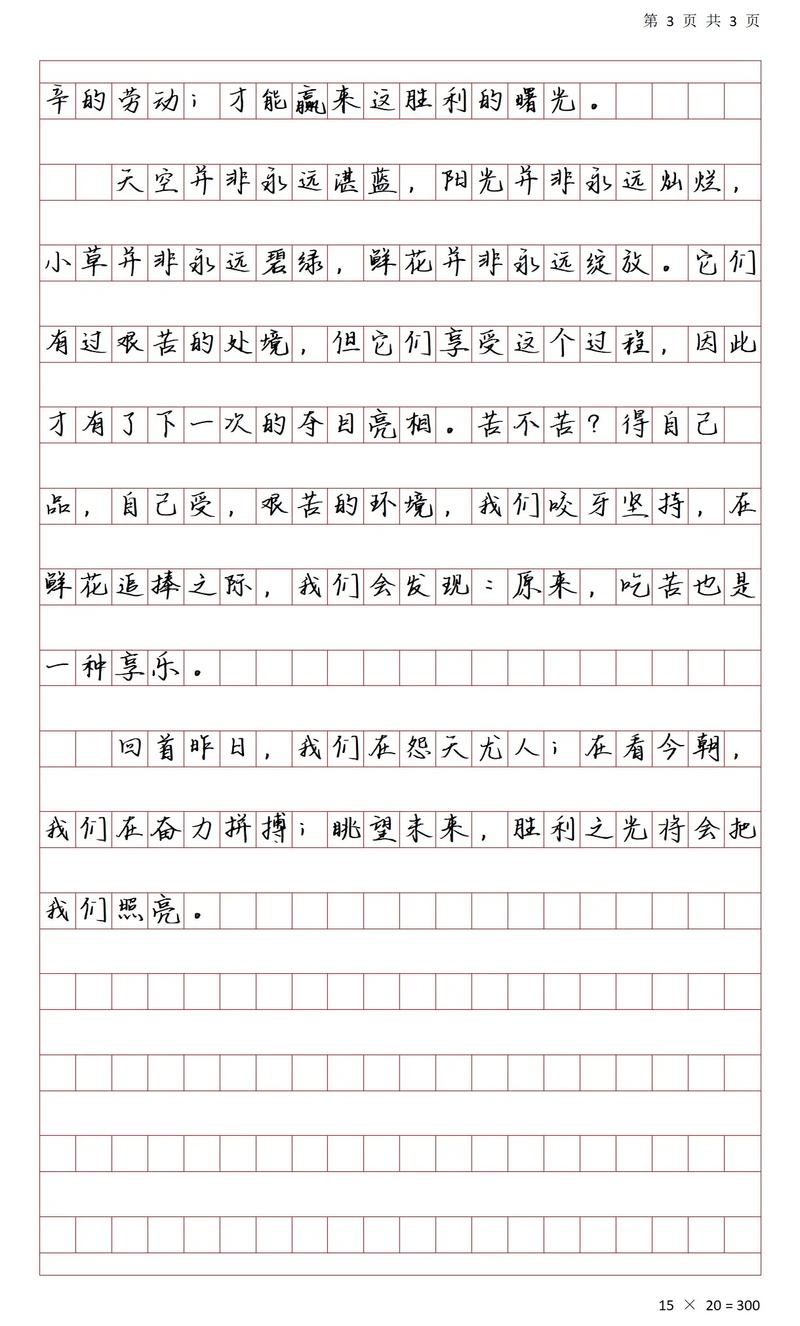 第 3 页 共 3 页
辛的劳动；才能赢来这胜利的曙光。
天空并非永远湛蓝，阳光并非永远灿烂，
小草并非永远碧绿，鲜花并非永远绽放。它们
有过艰苦的处境，但它们享受这个过程，因此
才有了下一次的夺目亮相。苦不苦？得自己
品，自己受，艰苦的环境，我们咬牙坚持，在
鲜花追捧之际，我们会发现：原来，吃苦也是
一种享乐。
回首昨日，我们在怨天尤人；在看今朝，
我们在奋力拼搏；眺望未来，胜利之光将会把
我们照亮。
15 × 20 = 300